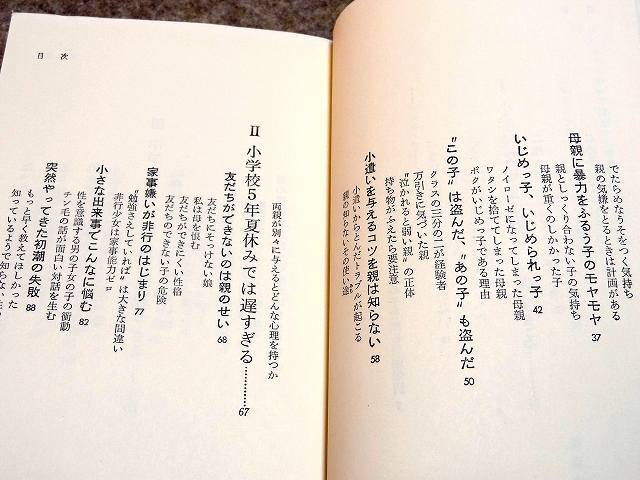 でたらめなうそをつく気持ち
親の気嫌をとるときは計画がある
母親に暴力をふるう子のモヤモヤ 37
親としっくり合わない子の気持ち
母親が重くのしかかった子
いじめっ子、いじめられっ子 42
ノイローゼになってしまった母親
ワタシを捨ててしまった母親
ボクがいじめっ子である理由
“この子”は盗んだ、“あの子”も盗んだ 50
クラスの三分の二が経験者
万引きに気づいた親
“泣かれると弱い親”の正体
持ち物がふえたら要注意
小遣いを与えるコツを親は知らない 58
小遣いからとんだトラブルが起こる
親の知らないその使い途
目次
両親が別々に与えるとどんな心理を持つか
Ⅱ 小学校5年夏休みでは遅すぎる…………67
友だちができないのは親のせい 68
友だちにそっけない娘
私は母を恨む
友だちができにくい性格
友だちのできない子の危険
家事嫌いが非行のはじまり 77
“勉強さえしていれば”は大きな間違い
非行少女は家事能力ゼロ
小さな出来事でこんなに悩む 82
性を意識する男の子女の子の衝動
チン毛の話が面白い対話を生む
突然やってきた初潮の失敗 88
もっと早く教えてほしかった
知っているようで知らない